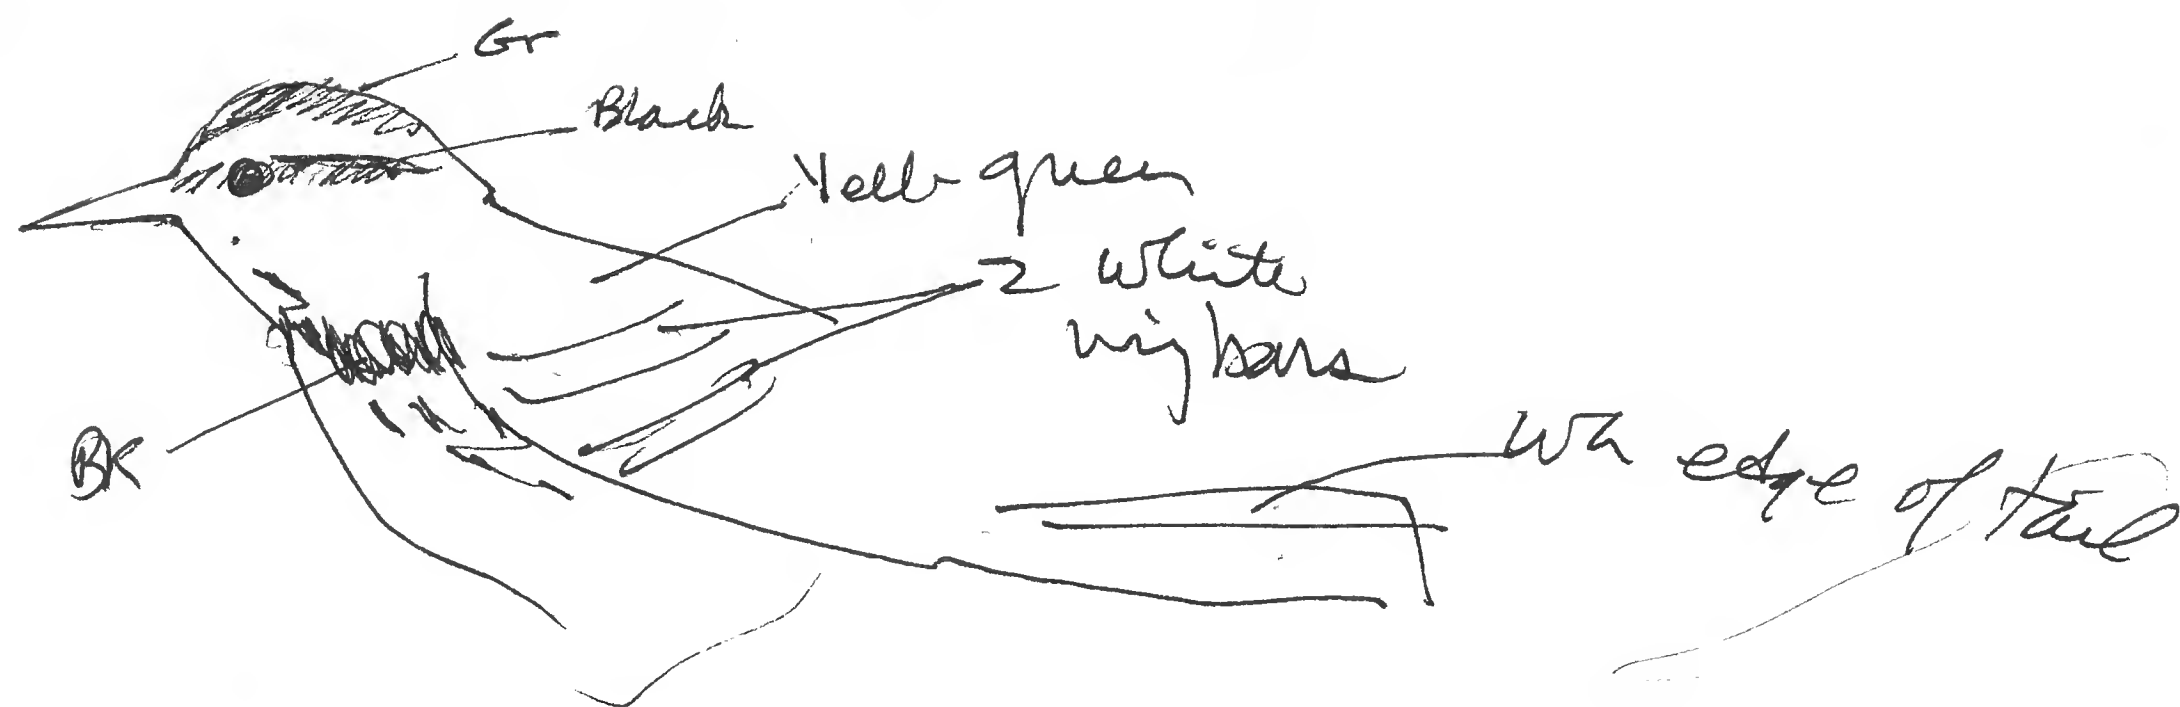 Gr
Black
Yell-green
2 white
wing bars
BK
Wh edge of tail